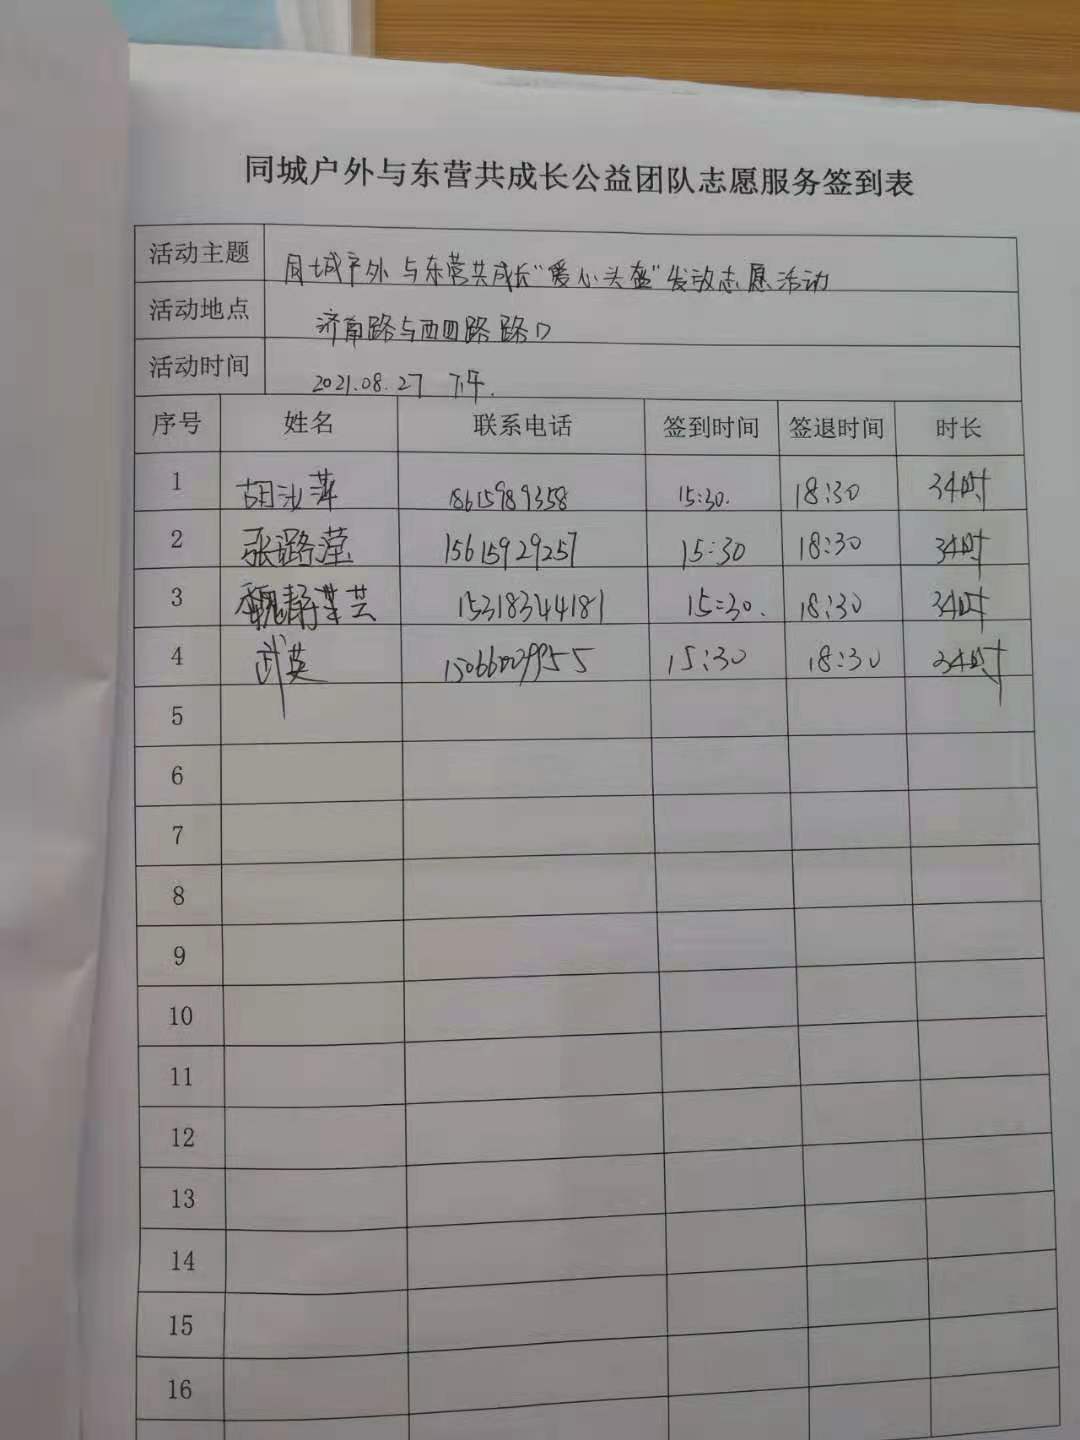 同城户外与东营共成长公益团队志愿服务签到表
活动主题 同城户外与东营共成长“爱心头盔”发放志愿活动
活动地点 济南路与西四路路口
活动时间 2021.08.27 下午.
序号 姓名 联系电话 签到时间 签退时间 时长
1 胡 萍 18615989358 15:30. 18:30 3小时
2 张璐滢 15615929257 15:30 18:30 3小时
3 魏静 芸 15318344181 15:30. 18:30 3小时
4 武英 15066009955 15:30 18:30 3小时
5
6
7
8
9
10
11
12
13
14
15
16